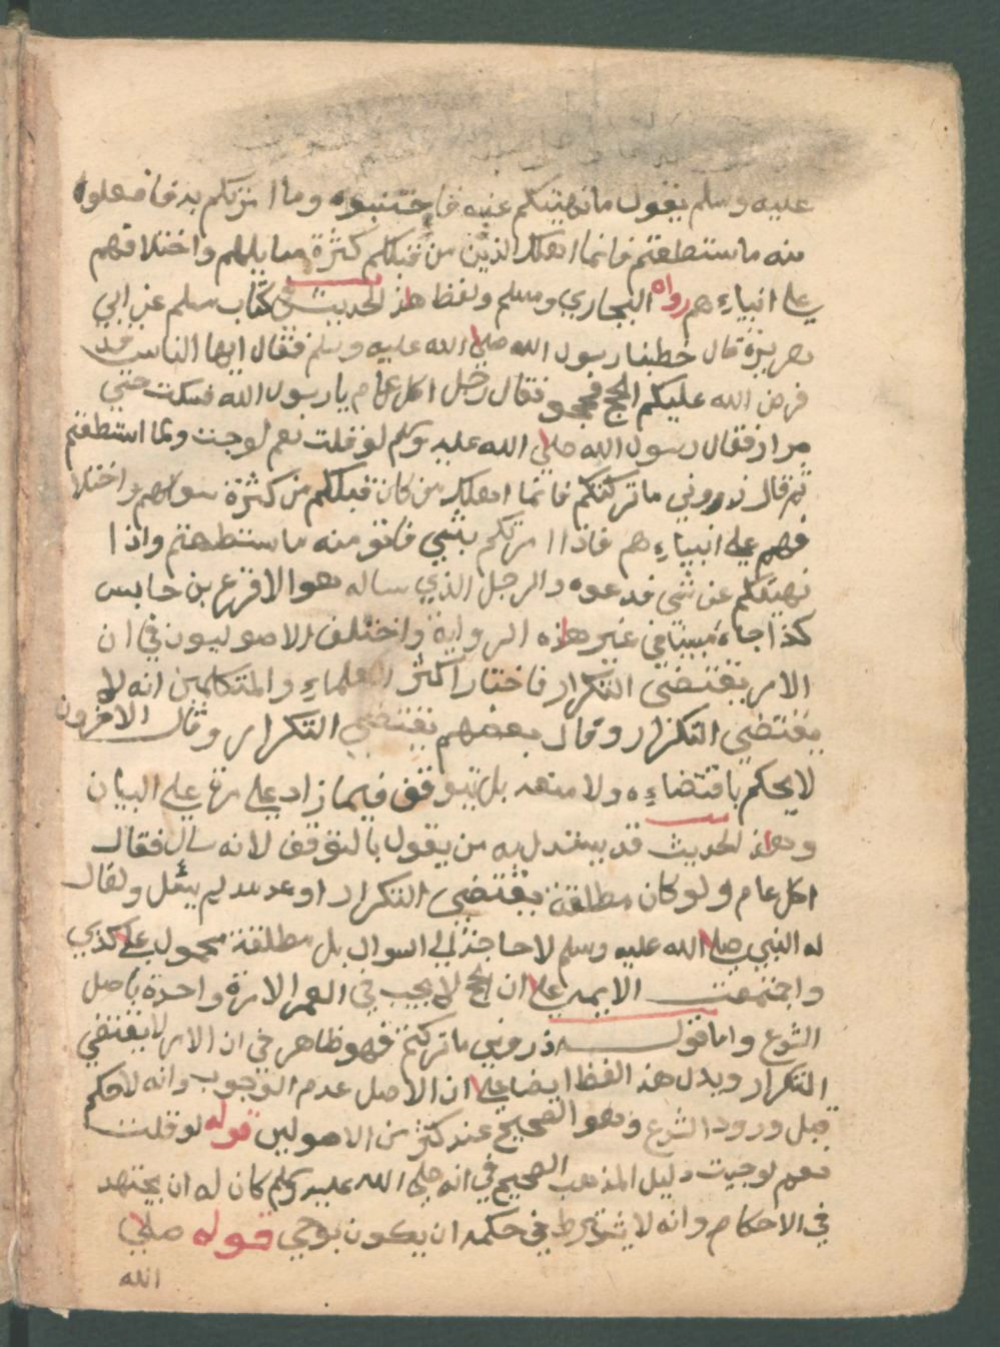 عليه وسلم يقول ما نهيتكم عنه فاجتنبوه وما امرتكم به فافعلوا
منه ما ستطعتم فانما اهلك الذين من قبلكم كثرة مسايلهم واختلافهم
على انبياءهم رواه البخاري ومسلم ولفظ هذ لحديث في كتاب مسلم عن ابي
هريرة قال خطبنا رسول الله صلى الله عليه وسلم فقال ايها الناس قد
فرض الله عليكم الحج فحجو فقال رجل اكل عام يا رسول الله فسكت حتى
مرار فقال رسول الله صلى الله عليه وسلم لو قلت نعم لوجبت ولما استطعتم
ثم قال ذروني ما تركتكم فانما اهلك من كان قبلكم من كثرة سوالهم واختلا
فهم على انبياءهم فاذا امرتكم بشي فاتو منه ما ستطعتم واذا
نهيتكم عن شي فدعوه والرجل الذي ساله هو الاقرع بن حابس
كذا جاء مبينا في غير هذه الرواية واختلف الاصوليون في ان
الامر يقتضي التكرار فاختار اكثر العلماء والمتكلمين انه لا
يقتضي التكرار وقال بعضهم يقتضي التكرار وقال الاخرون
لا يحكم باقتضاءه ولا منعه بل يتوقف فيما زاد على مرة على البيان
وهذ لحديث قد يستدل به من يقول بالتوقف لانه سال فقال
اكل عام ولو كان مطلقة يقتضي التكرار او عدمه لم يسئل ولقال
له النبي صلى الله عليه وسلم لا حاجة الي السوال بل مطلقة محمول على كذي
واجتمعت الايمه على ان الحج لا يجب في العمر الا مرة واحدة باصل
الشرع واما قول ذروني ما تركتم فهو ظاهر في ان الامر لا يقتضي
التكرار ويدل هذ الفظ ايضا على ان الاصل عدم الوجوب وانه لا حكم
قبل ورود الشرع وهو الصحيح عند كثر من الاصولين قوله لو قلت
نعم لوجبت دليل المذهب الصحيح في انه صلى الله عليه وسلم كان له ان يجتهد
في الاحكام وانه لا يشترط في حكمه ان يكون بوحي قوله صلى
الله